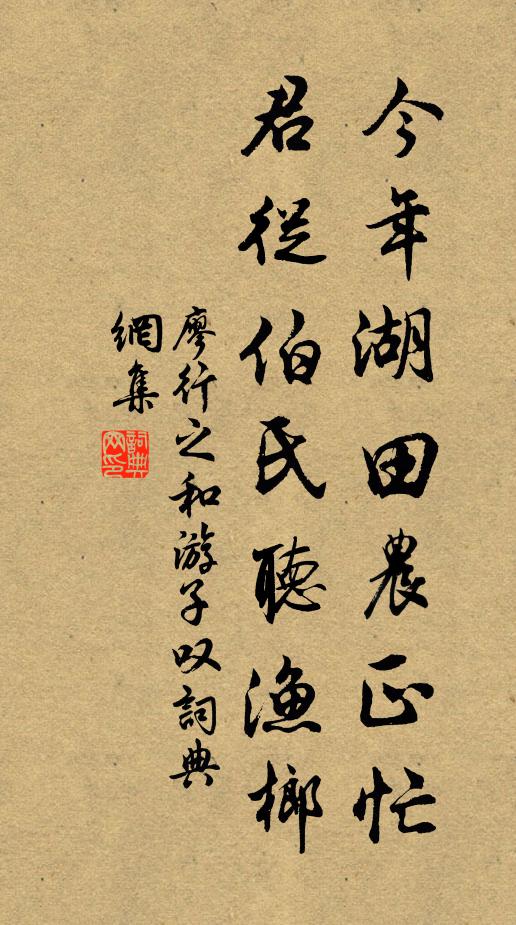 今年湖田農正忙
君從伯氏聽漁榔
廖行之和游子叹詞典
網集
詞典网印